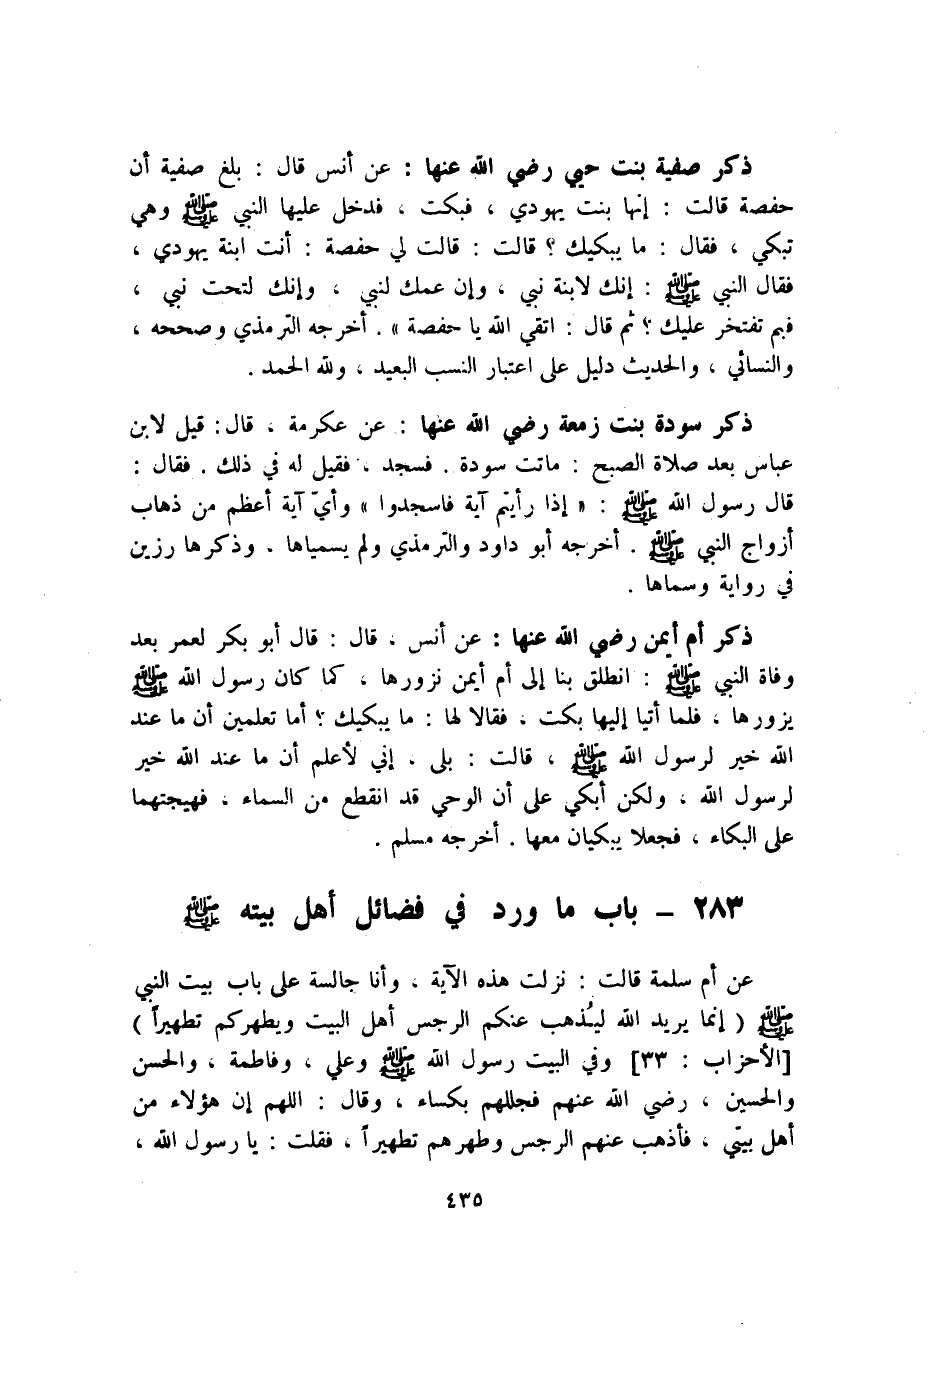 ذكر صفية بنت حيي رضي الله عنها : عن أنس قال : بلغ صفية أن
حفصة قالت : إنها بنت يهودي ، فبكت ، فدخل عليها النبي ﷺ وهي
تبكي ، فقال : ما يبكيك ؟ قالت : قالت لي حفصة : أنت ابنة يهودي ،
فقال النبي ﷺ : إنك لابنة نبي ، وإن عمك لنبي ، وإنك لتحت نبي ،
فبم تفتخر عليك ؟ ثم قال : اتقي الله يا حفصة » . أخرجه الترمذي وصححه ،
والنسائي ، والحديث دليل على اعتبار النسب البعيد ، ولله الحمد .
ذكر سودة بنت زمعة رضي الله عنها : عن عكرمة ، قال : قيل لابن
عباس بعد صلاة الصبح : ماتت سودة . فسجد ، فقيل له في ذلك . فقال :
قال رسول الله ﷺ : « إذا رأيتم آية فاسجدوا » وأيّ آية أعظم من ذهاب
أزواج النبي ﷺ . أخرجه أبو داود والترمذي ولم يسمياها . وذكرها رزين
في رواية وسماها .
ذكر أم أيمن رضي الله عنها : عن أنس ، قال : قال أبو بكر لعمر بعد
وفاة النبي ﷺ : انطلق بنا إلى أم أيمن نزورها ، كما كان رسول الله ﷺ
يزورها ، فلما أتيا إليها بكت ، فقالا لها : ما يبكيك ؟ أما تعلمين أن ما عند
الله خير لرسول الله ﷺ ، قالت : بلى ، إني لأعلم أن ما عند الله خير
لرسول الله ، ولكن أبكي على أن الوحي قد انقطع من السماء ، فهيجتهما
على البكاء ، فجعلا يبكيان معها . أخرجه مسلم .
٢٨٣ – باب ما ورد في فضائل أهل بيته ﷺ
عن أم سلمة قالت : نزلت هذه الآية ، وأنا جالسة على باب بيت النبي
ﷺ ( إنما يريد الله ليُذهب عنكم الرجس أهل البيت ويطهركم تطهيراً )
[الأحزاب : ٣٣] وفي البيت رسول الله ﷺ وعلي ، وفاطمة ، والحسن
والحسين ، رضي الله عنهم فجللهم بكساء ، وقال : اللهم إن هؤلاء من
أهل بيتي ، فأذهب عنهم الرجس وطهرهم تطهيراً ، فقلت : يا رسول الله ،
٤٣٥